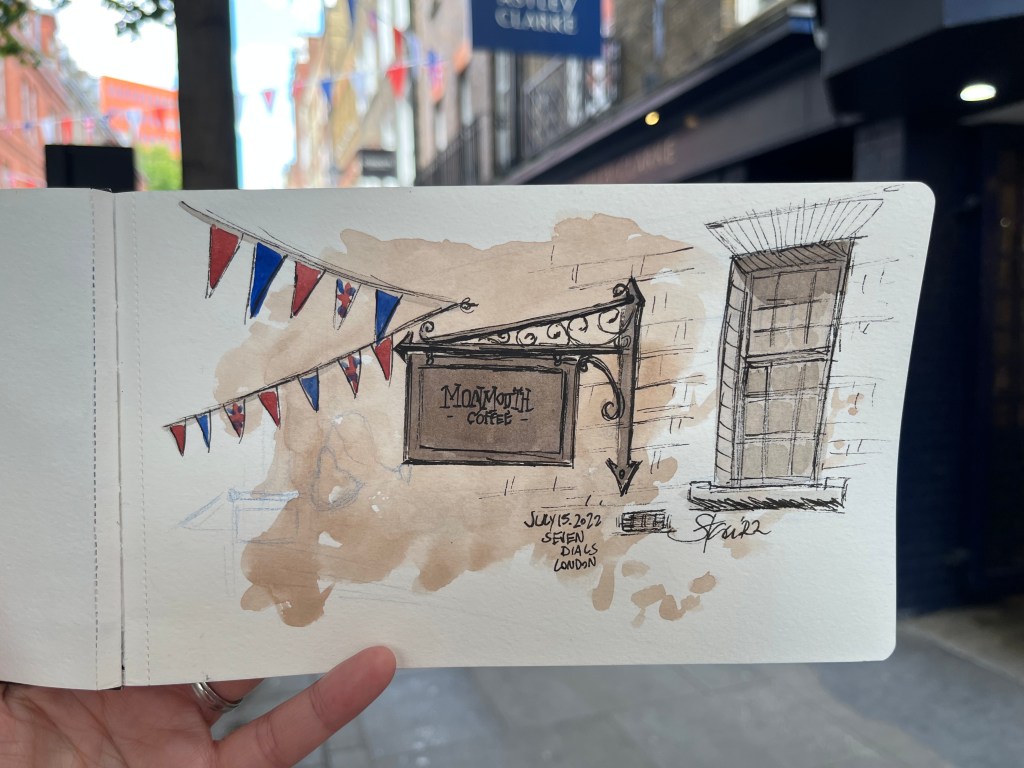 CLARKE
MONMOUTH
- COFFEE -
JULY 15. 2022
SEVEN
DIALS
LONDON